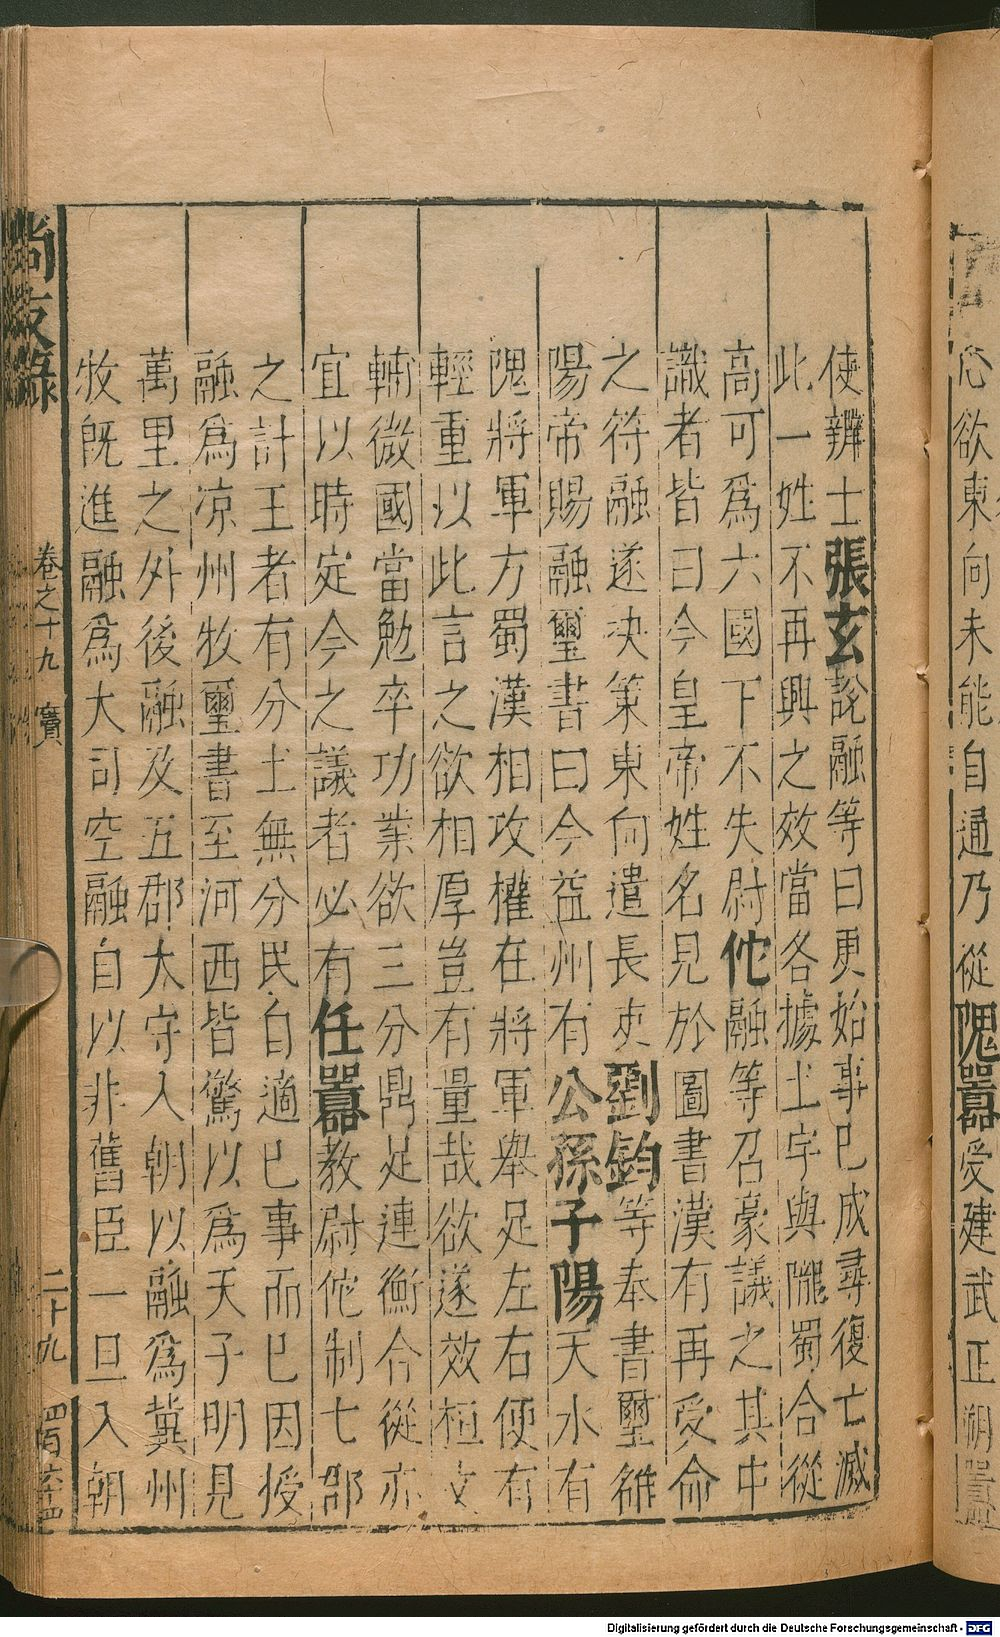 心欲東向未能自通乃從隗囂受建武正朔囂
使辨士張玄說融等曰更始事已成尋復亡滅
此一姓不再興之效當各據土宇與隴蜀合從
高可爲六國下不失尉佗融等召豪議之其中
識者皆曰今皇帝姓名見於圖書漢有再受命
之符融遂决策東向遣長史劉鈞等奉書璽雒
陽帝賜融璽書曰今益州有公孫子陽天水有
隗將軍方蜀漢相攻權在將軍舉足左右便有
輕重以此言之欲相厚豈有量哉欲遂效桓文
輔微國當勉卒功業欲三分鼎足連衡合從亦
宜以時定今之議者必有任囂教尉佗制七郡
之計王者有分土無分民自適已事而已因授
融爲凉州牧璽書至河西皆驚以爲天子明見
萬里之外後融及五郡太守入朝以融爲冀州
牧旣進融爲大司空融自以非舊臣一旦入朝
尚友錄 卷之十九 竇 二十九
Digitalisierung gefördert durch die Deutsche Forschungsgemeinschaft - DFG